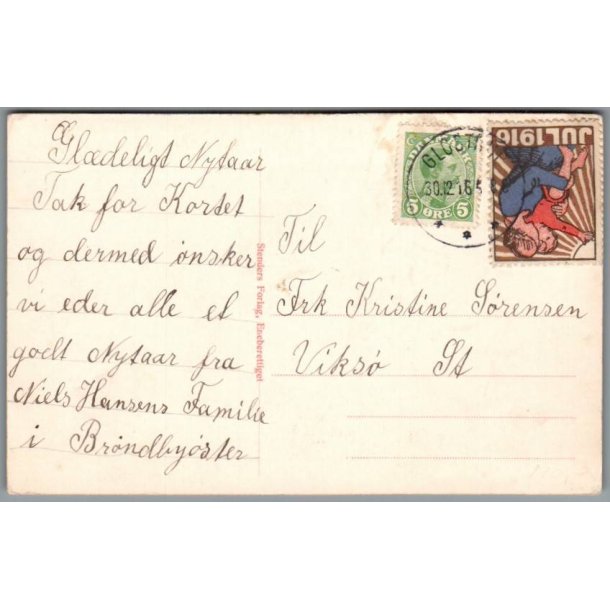 Glædeligt Nytaar
Tak for Kortet
og dermed ønsker
vi eder alle et
godt Nytaar fra
Niels Hansens Familie
i Brøndbyøster
Stenders Forlag, Eneberettiget
Til
Frk Kristine Sørensen
Viksø St
5 ØRE 5
GLOSTR
30.12.16.5
JUL 1916